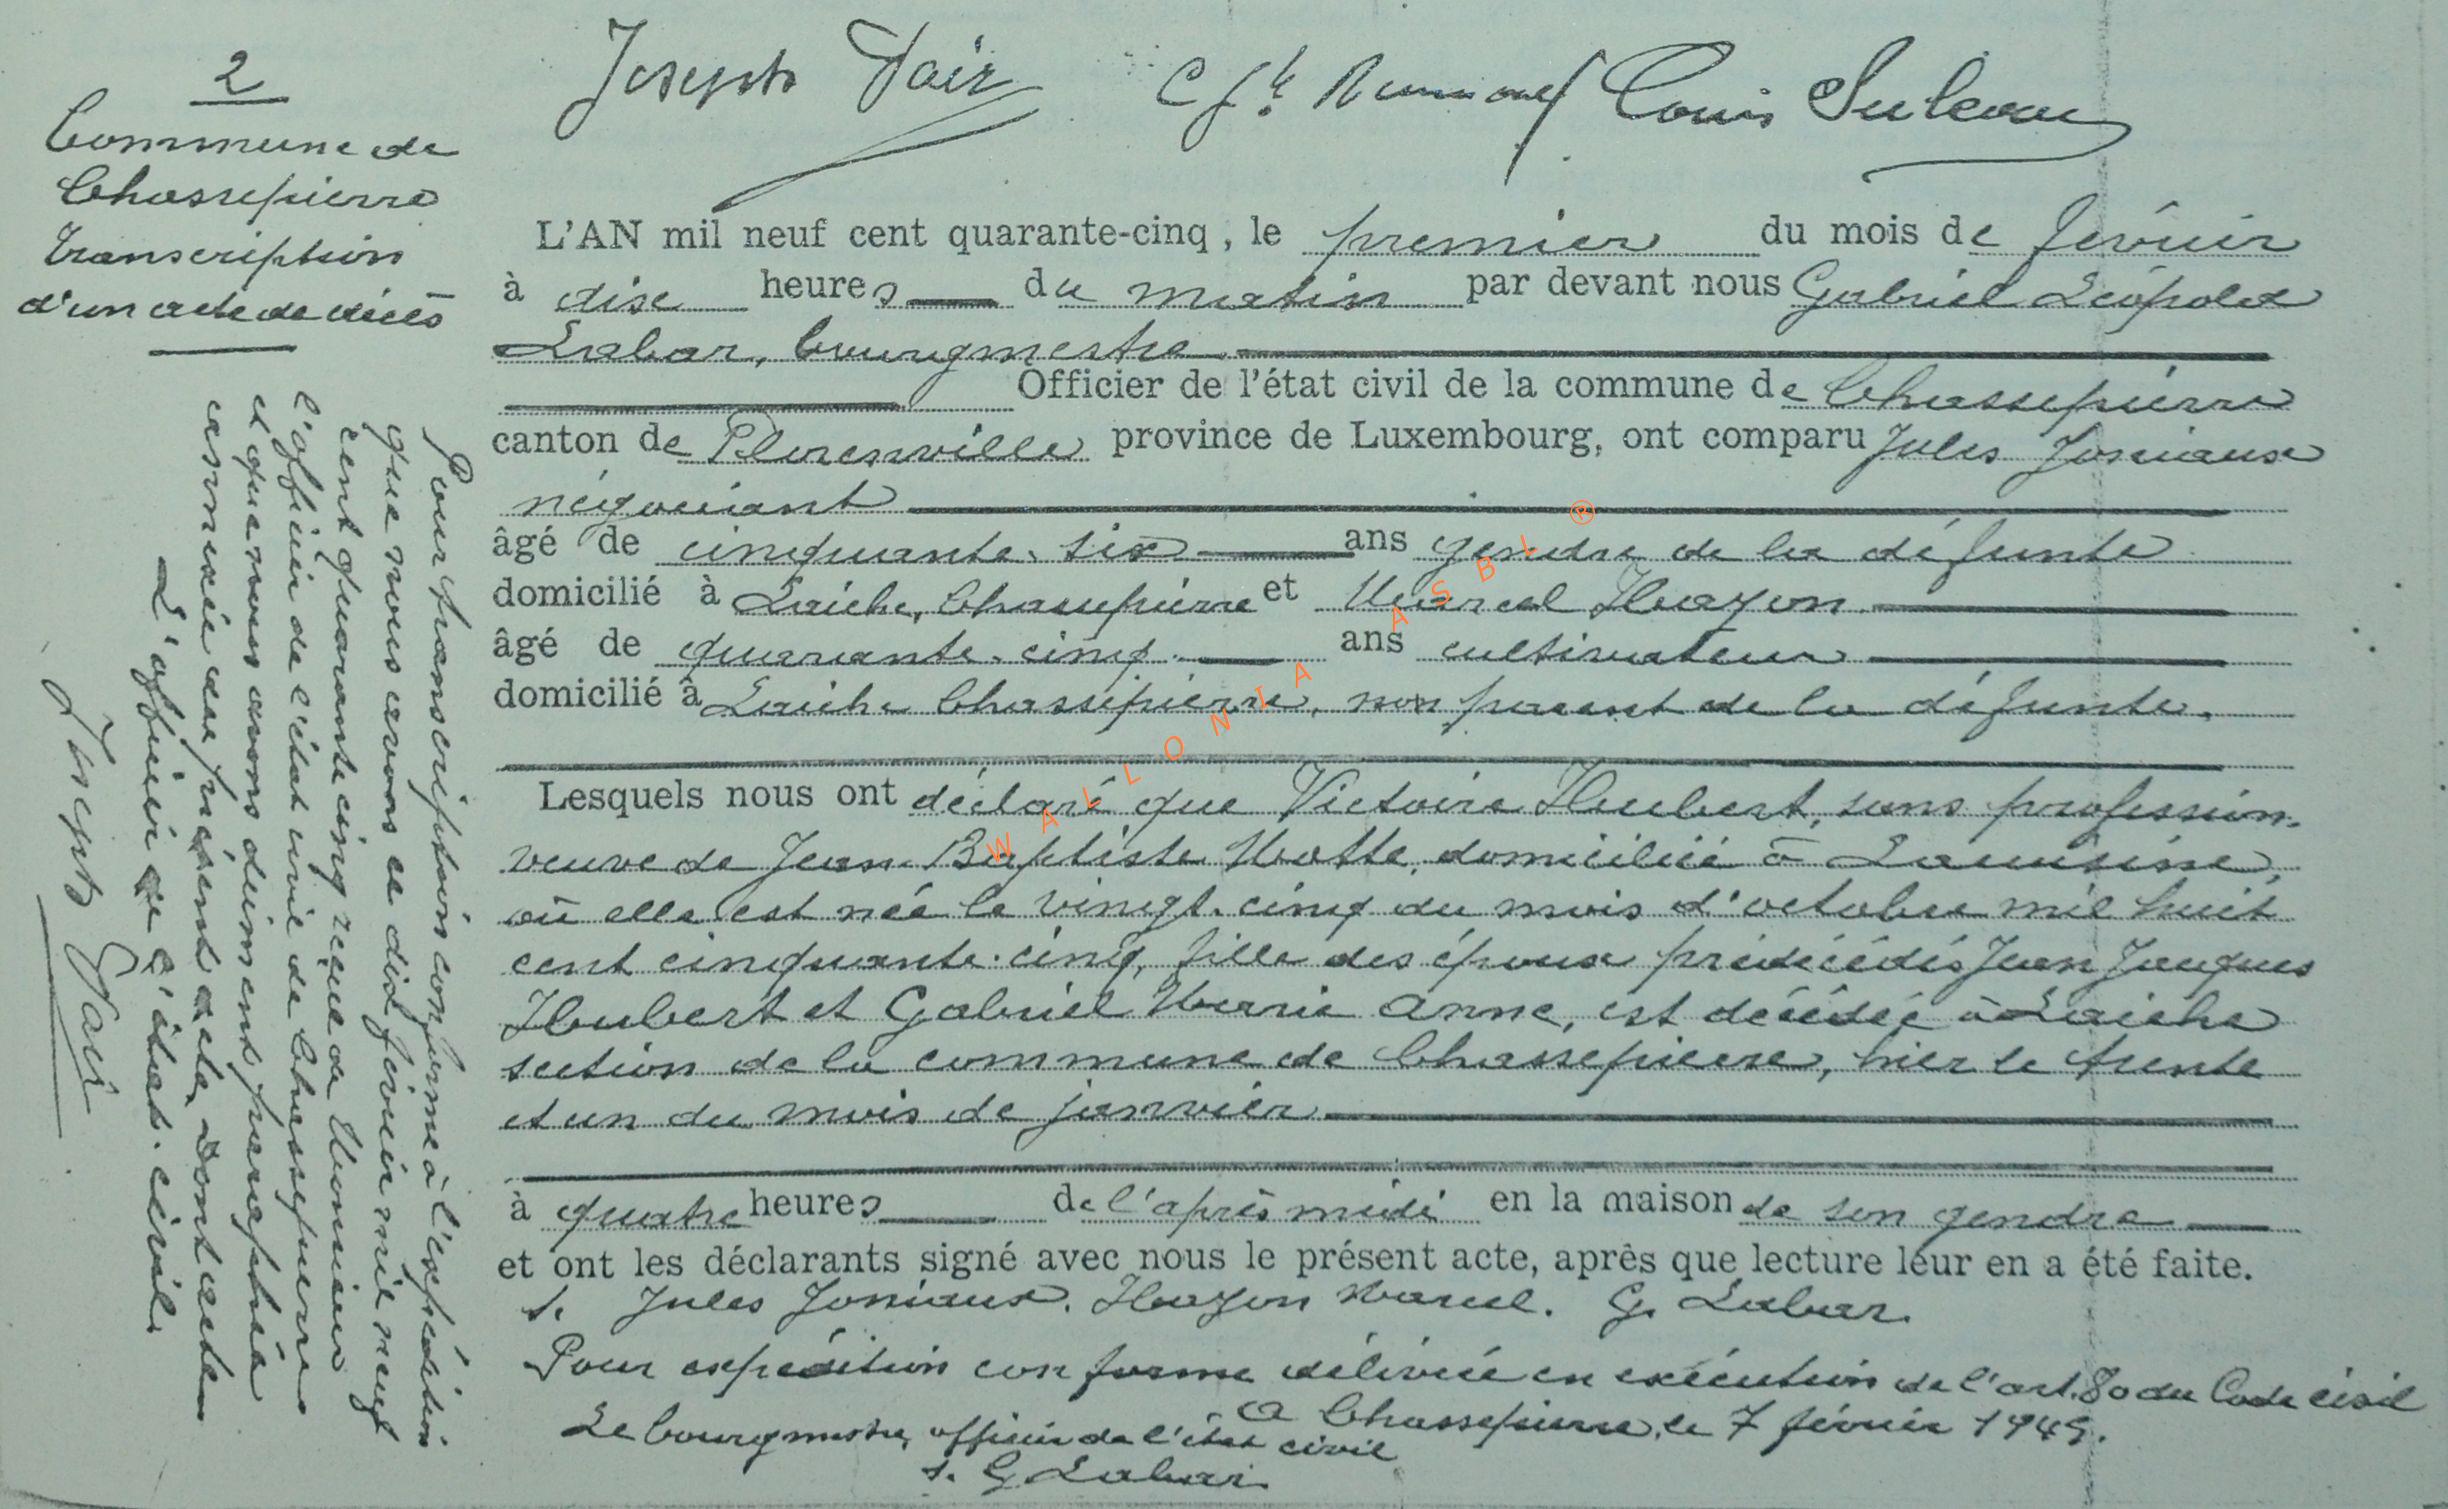 Joseph Pair Louis Suleau
2
Commune de
Chassepierre
Transcription
d'un acte de décès
L'AN mil neuf cent quarante-cinq, le premier du mois de février
à dix heures du matin par devant nous Gabriel Léopold
Labar, bourgmestre
Officier de l'état civil de la commune de Chassepierre
canton de Florenville province de Luxembourg, ont comparu Jules Joniaux
négociant
âgé de cinquante-six ans gendre de la défunte
domicilié à Laiche, Chassepierre et Marcel Hazon
âgé de quarante-cinq ans cultivateur
domicilié à Laiche Chassepierre, non parent de la défunte.
Lesquels nous ont déclaré que Victoire Hubert, sans profession,
veuve de Jean-Baptiste Motte, domicilié à
où elle est née le vingt-cinq du mois d'octobre mil huit
cent cinquante-cinq, fille des époux prédécédés Jean Jacques
Hubert et Gabriel Marie Anne, est décédée à Laiche
section de la commune de Chassepierre, hier le trente
et un du mois de janvier
à quatre heures de l'après midi en la maison de son gendre
et ont les déclarants signé avec nous le présent acte, après que lecture leur en a été faite.
s. Jules Joniaux. Hazon Marcel. G. Labar.
Pour expédition conforme délivrée en exécution de l'art. 80 du Code civil
A Chassepierre, le 7 février 1945.
Le bourgmestre, officier de l'état civil
s. G. Labar
Pour transcription conforme à l'expédition
que nous avons ce dix février mil neuf
cent quarante cinq reçue de Monsieur
l'officier de l'état civil de Chassepierre
et que nous avons dûment paraphée
et annexée au présent acte, Dont acte
L'officier de l'état-civil.
Joseph Pair
WALLONIA ASBL ®